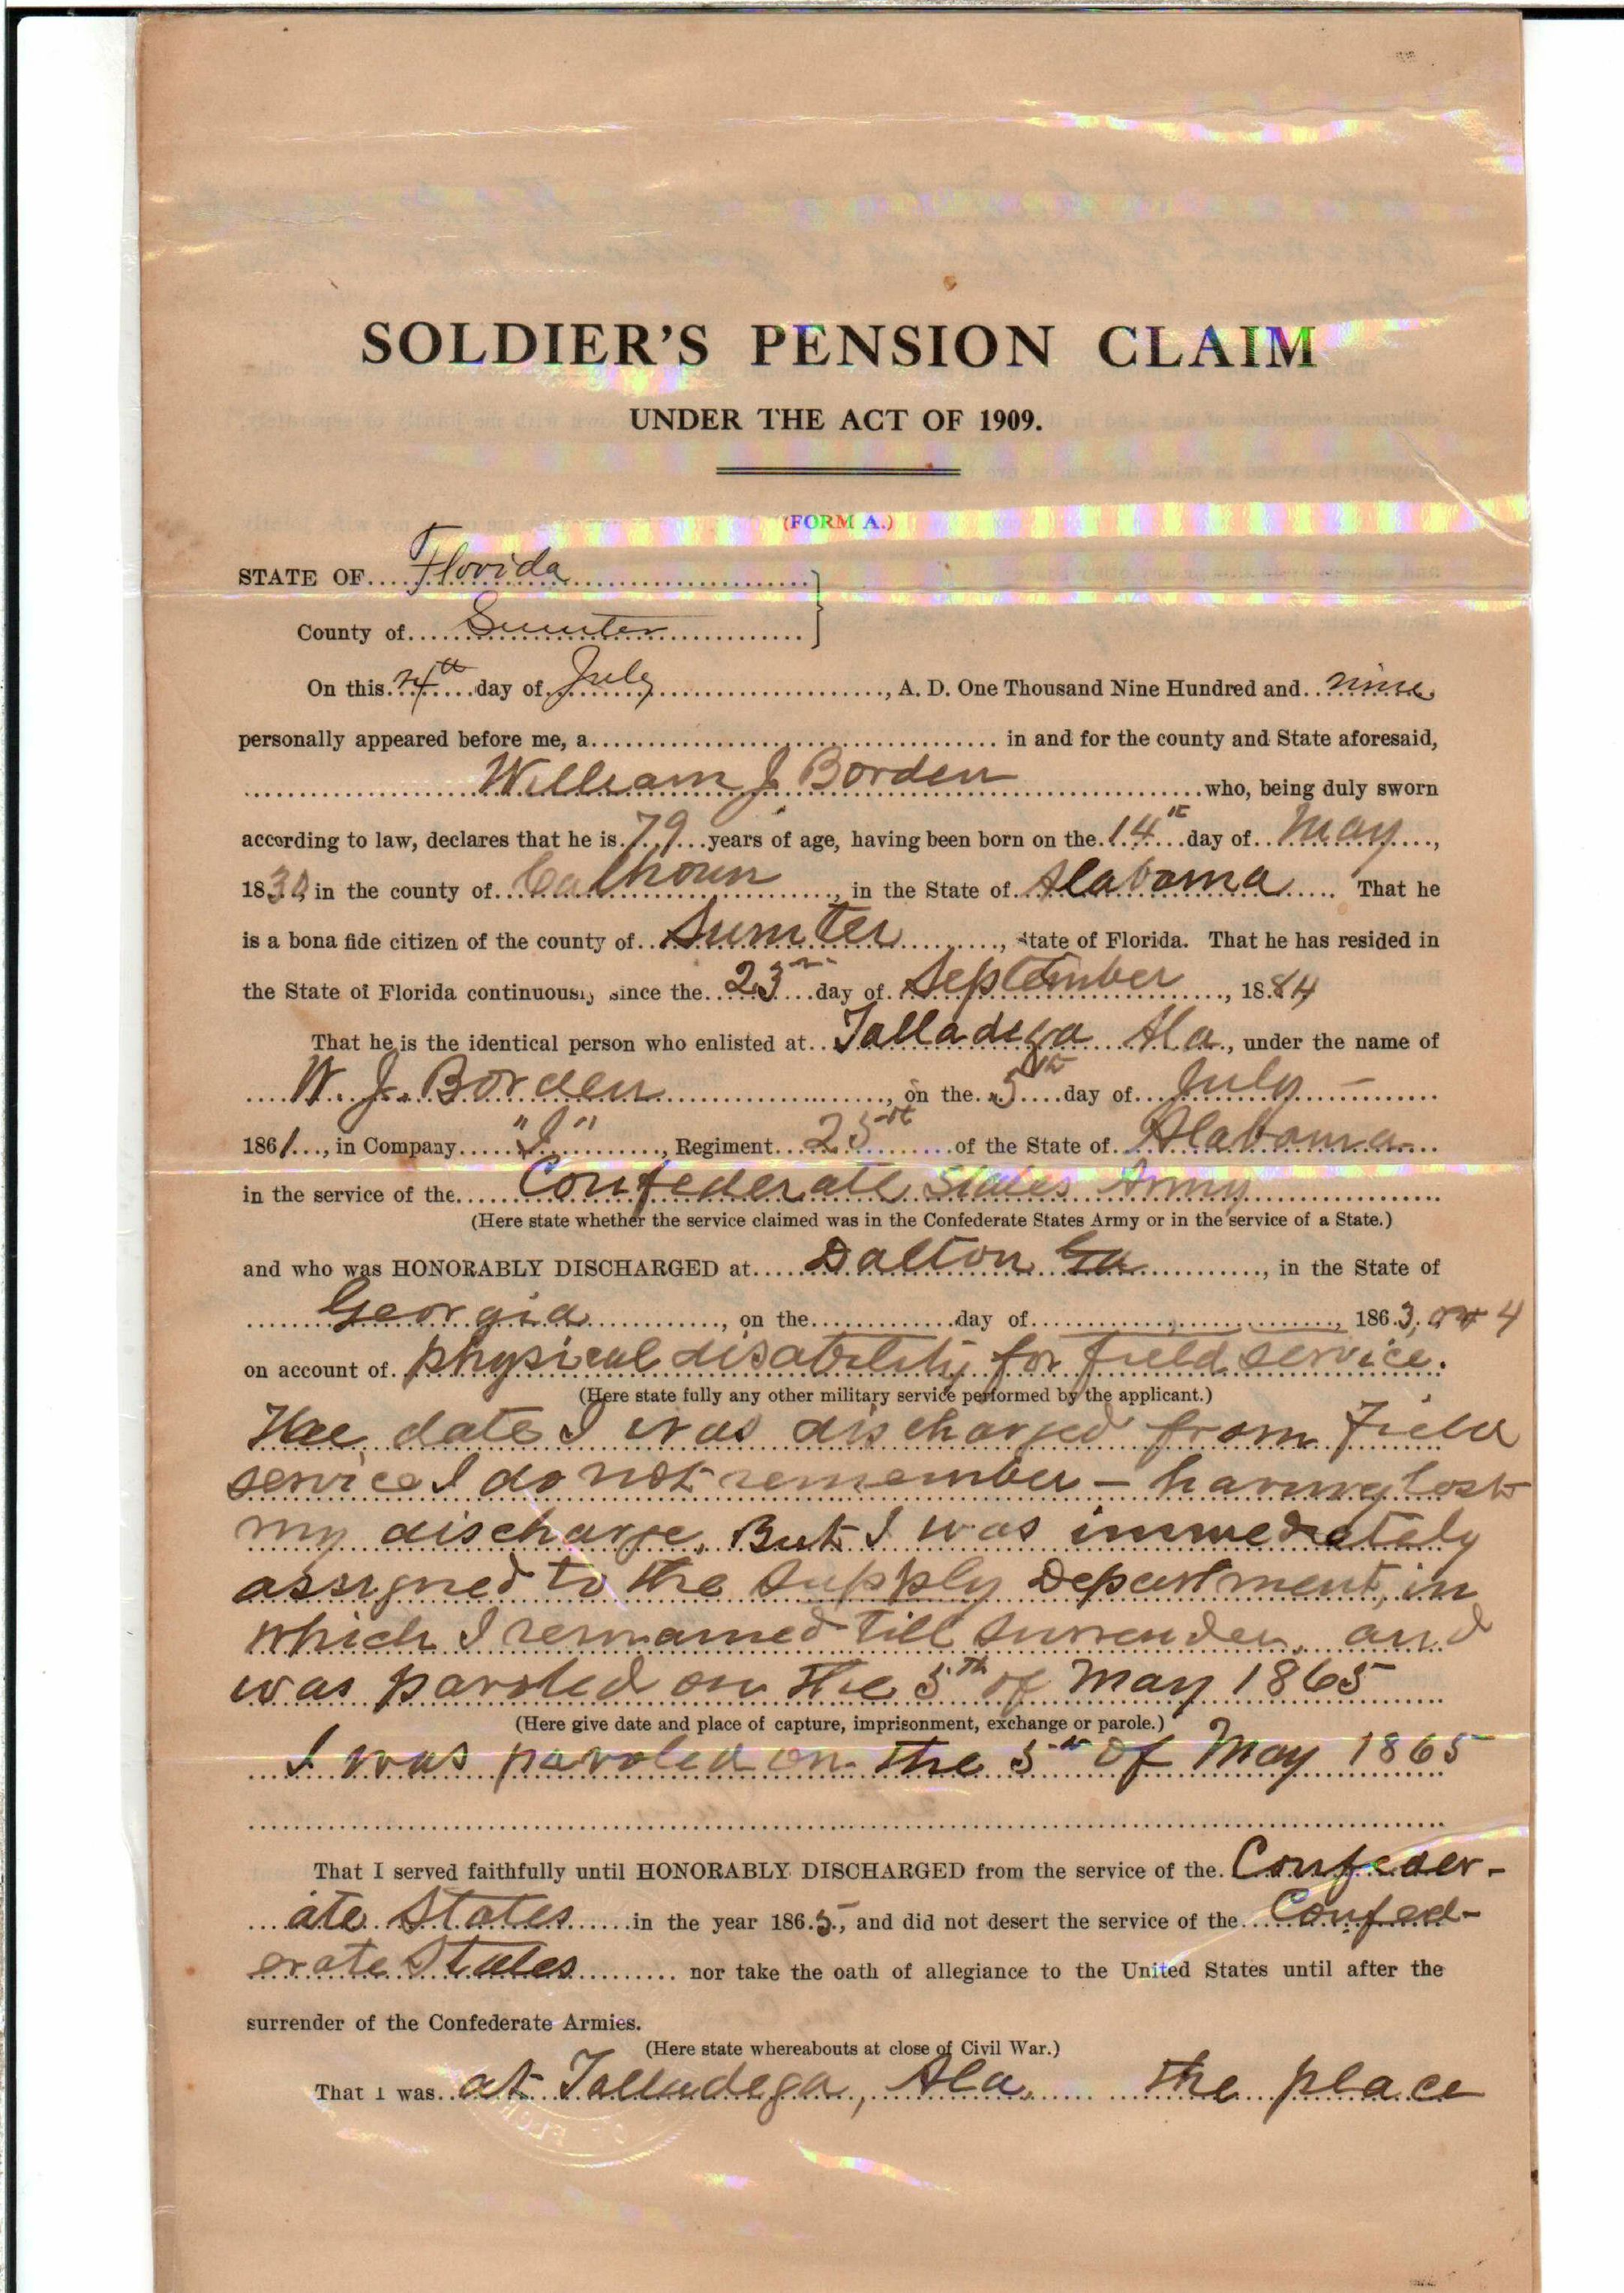 SOLDIER'S PENSION CLAIM
UNDER THE ACT OF 1909.
(FORM A.)
STATE OF Florida
County of Sumter
On this day of July, A. D. One Thousand Nine Hundred and nine
personally appeared before me, a in and for the county and State aforesaid,
William J Borden who, being duly sworn
according to law, declares that he is 79 years of age, having been born on the 14th day of May,
1830, in the county of Calhoun, in the State of Alabama. That he
is a bona fide citizen of the county of Sumter, State of Florida. That he has resided in
the State of Florida continuously since the 23 day of September, 1884
That he is the identical person who enlisted at Talladega Ala, under the name of
W. J. Borden, on the 5th day of July –
1861, in Company, Regiment 25 of the State of Alabama
in the service of the Confederate States Army
(Here state whether the service claimed was in the Confederate States Army or in the service of a State.)
and who was HONORABLY DISCHARGED at Dalton Ga, in the State of
Georgia, on the day of, 1863, or 4
on account of physical disability for field service.
(Here state fully any other military service performed by the applicant.)
The date I was discharged from Field
service I do not remember – having lost
my discharge. But I was immediately
assigned to the supply Department, in
which I remained till surrender, and
was paroled on the 5th of May 1865
(Here give date and place of capture, imprisonment, exchange or parole.)
I was paroled on the 5th of May 1865
That I served faithfully until HONORABLY DISCHARGED from the service of the Confeder-
ate States in the year 1865, and did not desert the service of the Confed-
erate States nor take the oath of allegiance to the United States until after the
surrender of the Confederate Armies.
(Here state whereabouts at close of Civil War.)
That I was at Talladega, Ala, the place